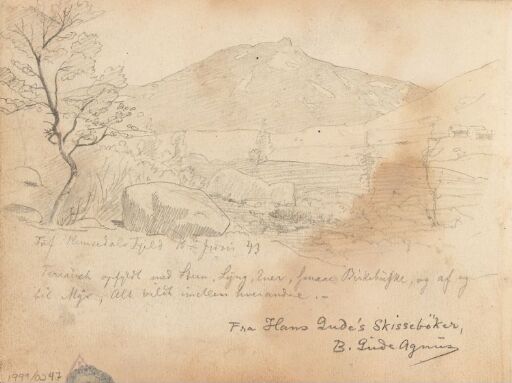 Hemsedals Fjeld 43
Terrainet opfyldt med Steen, Lyng, Ener, smaae Birkebuske, og af og
til Myr, Alt vildt imellem hverandre. –
Fra Hans Gude's Skissebøker,
B. Gude Agnus
1999/0247